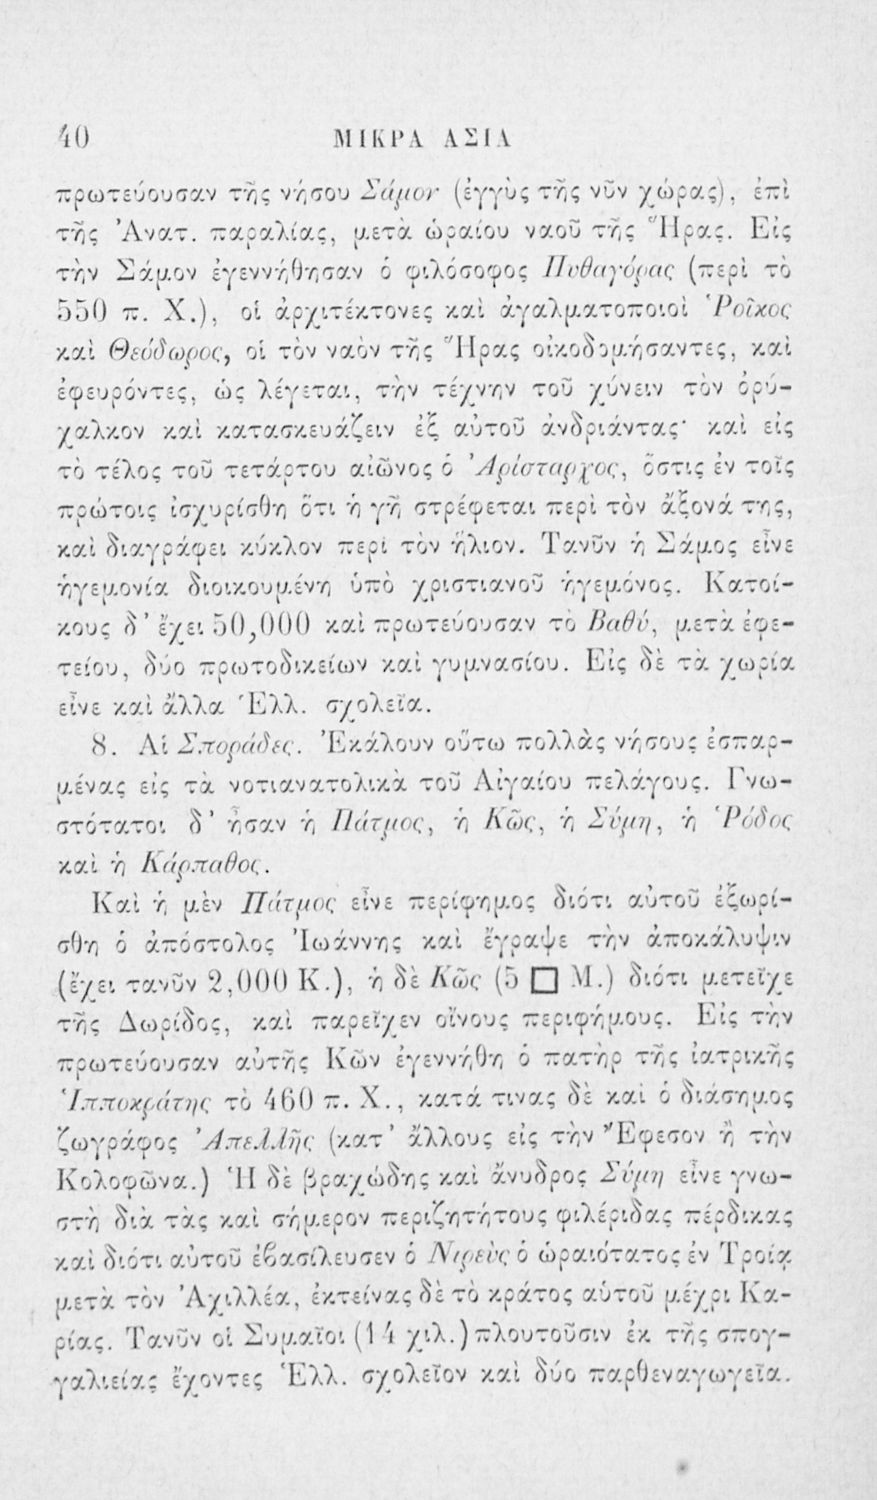 40 ΜΙΚΡΑ ΑΣΙΑ
πρωτεύουσαν τῆς νήσου Σάμον (ἐγγὺς τῆς νῦν χώρας), ἐπὶ
τῆς Ἀνατ. παραλίας, μετὰ ὡραίου ναοῦ τῆς Ἥρας. Εἰς
τὴν Σάμον ἐγεννήθησαν ὁ φιλόσοφος Πυθαγόρας (περὶ τὸ
550 π. Χ.), οἱ ἀρχιτέκτονες καὶ ἀγαλματοποιοὶ Ῥοῖκος
καὶ Θεόδωρος, οἱ τὸν ναὸν τῆς Ἥρας οἰκοδομήσαντες, καὶ
ἐφευρόντες, ὡς λέγεται, τὴν τέχνην τοῦ χύνειν τὸν ὀρύ-
χαλκον καὶ κατασκευάζειν ἐξ αὐτοῦ ἀνδριάντας· καὶ εἰς
τὸ τέλος τοῦ τετάρτου αἰῶνος ὁ Ἀρίσταρχος, ὅστις ἐν τοῖς
πρώτοις ἰσχυρίσθη ὅτι ἡ γῆ στρέφεται περὶ τὸν ἄξονά της,
καὶ διαγράφει κύκλον περὶ τὸν ἥλιον. Τανῦν ἡ Σάμος εἶνε
ἡγεμονία διοικουμένη ὑπὸ χριστιανοῦ ἡγεμόνος. Κατοί-
κους δ' ἔχει 50,000 καὶ πρωτεύουσαν τὸ Βαθύ, μετὰ ἐφε-
τείου, δύο πρωτοδικείων καὶ γυμνασίου. Εἰς δὲ τὰ χωρία
εἶνε καὶ ἄλλα Ἑλλ. σχολεῖα.
8. Αἱ Σποράδες. Ἐκάλουν οὕτω πολλὰς νήσους ἐσπαρ-
μένας εἰς τὰ νοτιανατολικὰ τοῦ Αἰγαίου πελάγους. Γνω-
στότατοι δ' ἦσαν ἡ Πάτμος, ἡ Κῶς, ἡ Σύμη, ἡ Ῥόδος
καὶ ἡ Κάρπαθος.
Καὶ ἡ μὲν Πάτμος εἶνε περίφημος διότι αὐτοῦ ἐξωρί-
σθη ὁ ἀπόστολος Ἰωάννης καὶ ἔγραψε τὴν ἀποκάλυψιν
(ἔχει τανῦν 2,000 Κ.), ἡ δὲ Κῶς (5 □ Μ.) διότι μετεῖχε
τῆς Δωρίδος, καὶ παρεῖχεν οἴνους περιφήμους. Εἰς τὴν
πρωτεύουσαν αὐτῆς Κῶν ἐγεννήθη ὁ πατὴρ τῆς ἰατρικῆς
Ἱπποκράτης τὸ 460 π. Χ., κατά τινας δὲ καὶ ὁ διάσημος
ζωγράφος Ἀπελλῆς (κατ' ἄλλους εἰς τὴν Ἔφεσον ἢ τὴν
Κολοφῶνα.) Ἡ δὲ βραχώδης καὶ ἄνυδρος Σύμη εἶνε γνω-
στὴ διὰ τὰς καὶ σήμερον περιζητήτους φιλέριδας πέρδικας
καὶ διότι αὐτοῦ ἐβασίλευσεν ὁ Νιρεὺς ὁ ὡραιότατος ἐν Τροίᾳ
μετὰ τὸν Ἀχιλλέα, ἐκτείνας δὲ τὸ κράτος αὑτοῦ μέχρι Κα-
ρίας. Τανῦν οἱ Συμαῖοι (14 χιλ.) πλουτοῦσιν ἐκ τῆς σπογ-
γαλιείας ἔχοντες Ἑλλ. σχολεῖον καὶ δύο παρθεναγωγεῖα.